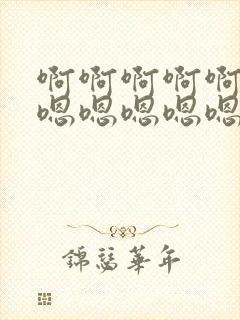 啊啊啊啊啊
嗯嗯嗯嗯嗯
锦瑟华年